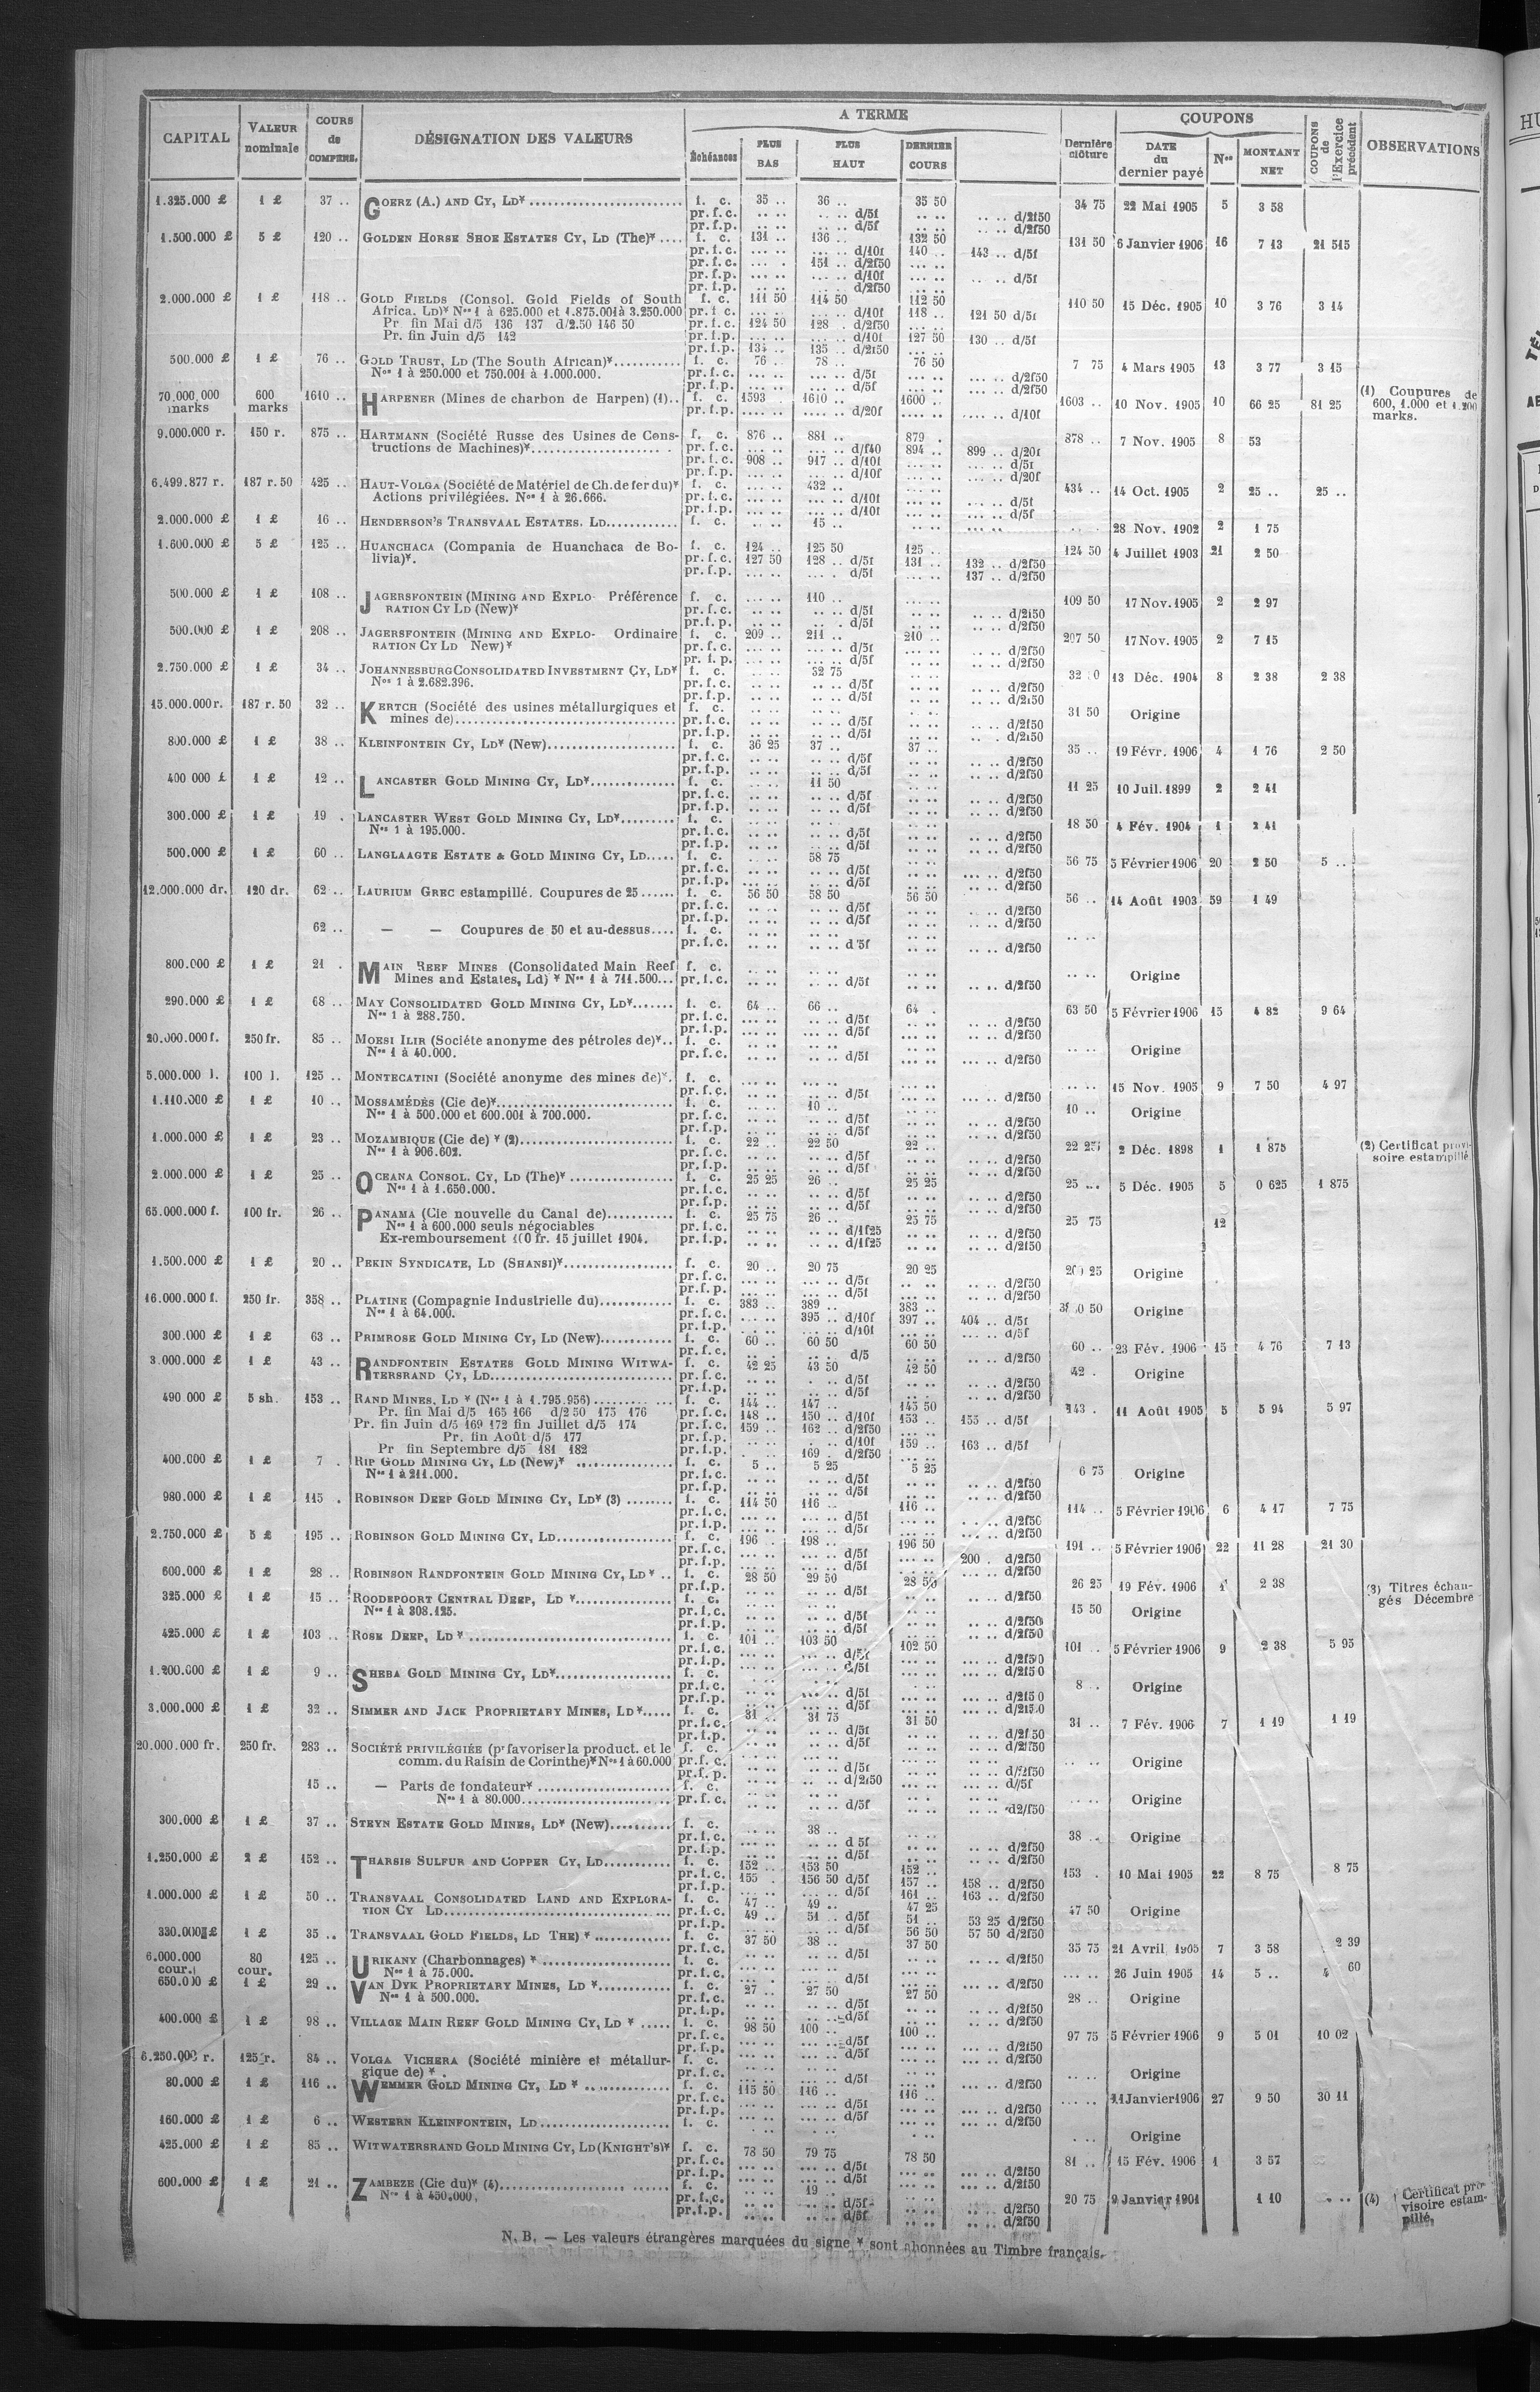 CAPITAL VALEUR nominale COURS de COMPENS. DÉSIGNATION DES VALEURS A TERME Échéances PLUS BAS PLUS HAUT DERNIER COURS Dernière clôture COUPONS DATE du dernier payé Nos MONTANT NET COUPONS de l'Exercice précédent OBSERVATIONS
1.325.000 £ 1 £ 37 .. GOERZ (A.) AND CY, LD* f. c. 35 .. 36 .. 35 50 34 75 22 Mai 1905 5 3 58
pr. f. c. .. .. .. .. d/5f .. .. .. .. d/2f50
pr. f. p. .. .. .. .. d/5f .. .. .. .. d/2f50
1.500.000 £ 5 £ 120 .. GOLDEN HORSE SHOE ESTATES CY, LD (The)* .... f. c. 131 .. 136 .. 132 50 131 50 6 Janvier 1906 16 7 13 21 515
pr. f. c. ... .. ... .. d/10f 140 .. 143 .. d/5f
pr. f. c. ... .. 151 .. d/2f50
pr. f. p. ... .. ... .. d/10f ... .. ... .. d/5f
pr. f. p. ... .. ... .. d/2f50
2.000.000 £ 1 £ 118 .. GOLD FIELDS (Consol. Gold Fields of South f. c. 111 50 114 50 112 50 110 50 15 Déc. 1905 10 3 76 3 14
Africa. LD)* Nos 1 à 625.000 et 1.875.001 à 3.250.000 pr. f. c. ... .. ... .. d/10f 118 .. 121 50 d/5f
Pr. fin Mai d/5 136 137 d/2.50 146 50 pr. f. c. 124 50 128 . d/2f50
Pr. fin Juin d/5 142 pr. f. p. ... .. ... .. d/10f 127 50 130 .. d/5f
pr. f. p. 134 .. 135 .. d/2f50
500.000 £ 1 £ 76 .. GOLD TRUST, LD (The South African)* f. c. 76 .. 78 .. 76 50 7 75 4 Mars 1905 13 3 77 3 15
Nos 1 à 250.000 et 750.001 à 1.000.000. pr. f. c. ... .. ... .. d/5f ... .. ... .. d/2f50
pr. f. p. ... .. ... .. d/5f ... .. ... .. d/2f50
70.000.000 marks 600 marks 1610 .. HARPENER (Mines de charbon de Harpen) (1).. f. c. 1593 1610 .. 1600 .. 1603 .. 10 Nov. 1905 10 66 25 81 25 (1) Coupures de 600, 1.000 et 1.200 marks.
pr. f. p. .... .. .... .. d/20f .... .. .... .. d/10f
9.000.000 r. 150 r. 875 .. HARTMANN (Société Russe des Usines de Cons- f. c. 876 .. 881 .. 879 . 878 .. 7 Nov. 1905 8 53
tructions de Machines)* pr. f. c. ... .. ... .. d/f40 894 .. 899 .. d/20f
pr. f. c. 908 .. 917 .. d/10f ... .. ... .. d/5f
pr. f. p. ... .. ... .. d/10f ... .. ... .. d/20f
6.499.877 r. 187 r. 50 425 .. HAUT-VOLGA (Société de Matériel de Ch. de fer du)* f. c. ... .. 432 .. 434 .. 14 Oct. 1905 2 25 .. 25 ..
Actions privilégiées. Nos 1 à 26.666. pr. f. c. ... .. ... .. d/10f ... .. ... .. d/5f
pr. f. p. ... .. ... .. d/10f ... .. ... .. d/5f
2.000.000 £ 1 £ 16 .. HENDERSON'S TRANSVAAL ESTATES. LD f. c. .. .. 15 .. 28 Nov. 1902 2 1 75
1.600.000 £ 5 £ 125 .. HUANCHACA (Compania de Huanchaca de Bo- f. c. 124 .. 125 50 125 .. 124 50 4 Juillet 1903 21 2 50
livia)*. pr. f. c. 127 50 128 .. d/5f 131 .. 132 .. d/2f50
pr. f. p. ... .. ... . d/5f ... .. 137 .. d/2f50
500.000 £ 1 £ 108 .. JAGERSFONTEIN (MINING AND EXPLO- Préférence f. c. ... .. 110 .. 109 50 17 Nov. 1905 2 2 97
RATION CY LD (New)* pr. f. c. .. .. .. .. d/5f .. .. d/2f50
pr. f. p. .. .. .. .. d/5f .. .. d/2f50
500.000 £ 1 £ 208 .. JAGERSFONTEIN (MINING AND EXPLO- Ordinaire f. c. 209 .. 211 .. 210 .. 207 50 17 Nov. 1905 2 7 15
RATION CY LD New)* pr. f. c. ... .. ... .. d/5f ... .. d/2f50
pr. f. p. ... .. ... .. d/5f ... .. d/2f50
2.750.000 £ 1 £ 34 .. JOHANNESBURG CONSOLIDATED INVESTMENT CY, LD* f. c. .. .. 32 75 13 Déc. 1904 8 2 38 2 38
Nos 1 à 2.682.396. pr. f. c. .. .. .. .. d/5f .. .. d/2f50
pr. f. p. .. .. .. .. d/5f .. .. d/2f50
15.000.000 r. 187 r. 50 32 .. KERTCH (Société des usines métallurgiques et f. c. 31 50 Origine
mines de) pr. f. c. .. .. .. .. d/5f .. .. d/2f50
pr. f. p. .. .. .. .. d/5f .. . d/2f50
800.000 £ 1 £ 38 .. KLEINFONTEIN CY, LD* (New) f. c. 36 25 37 .. 37 .. 35 .. 19 Févr. 1906 4 1 76 2 50
pr. f. c. .. .. .. .. d/5f .. .. d/2f50
pr. f. p. .. .. .. .. d/5f .. .. d/2f50
400 000 £ 1 £ 12 .. LANCASTER GOLD MINING CY, LD* f. c. .. .. 11 50 11 25 10 Juil. 1899 2 2 41
pr. f. c. .. .. .. .. d/5f .. .. d/2f50
pr. f. p. .. .. .. .. d/5f .. .. d/2f50
300.000 £ 1 £ 19 . LANCASTER WEST GOLD MINING CY, LD* f. c. 18 50 4 Fév. 1904 1 2 41
Nos 1 à 195.000. pr. f. c. .. .. .. .. d/5f .. .. d/2f50
pr. f. p. .. .. .. .. d/5f .. .. d/2f50
500.000 £ 1 £ 60 .. LANGLAAGTE ESTATE & GOLD MINING CY, LD f. c. .. .. 58 75 56 75 5 Février 1906 20 2 50 5 ..
pr. f. c. .. .. .. .. d/5f ... .. d/2f50
pr. f. p. ... .. .. .. d/5f .. .. d/2f50
12.000.000 dr. 120 dr. 62 .. LAURIUM GREC estampillé. Coupures de 25 f. c. 56 50 58 50 56 50 56 .. 14 Août 1903 59 1 49
pr. f. c. .. .. .. .. d/5f .. .. d/2f50
pr. f. p. .. .. .. .. d/5f .. .. d/2f50
62 .. — — Coupures de 50 et au-dessus f. c. .. ..
pr. f. c. .. .. .. .. d 5f .. .. d/2f50
800.000 £ 1 £ 21 . MAIN REEF MINES (Consolidated Main Reef f. c. .. .. Origine
Mines and Estates, Ld) * Nos 1 à 711.500... pr. f. c. .. .. .. .. d/5f .. .. d/2f50
290.000 £ 1 £ 68 .. MAY CONSOLIDATED GOLD MINING CY, LD* f. c. 64 .. 66 .. 64 . 63 50 5 Février 1906 15 4 82 9 64
Nos 1 à 288.750. pr. f. c. ... .. ... .. d/5f ... .. d/2f50
pr. f. p. ... .. ... .. d/5f ... .. d/2f50
20.000.000 f. 250 fr. 85 .. MOESI ILIR (Société anonyme des pétroles de)*.. f. c. .. .. Origine
Nos 1 à 40.000. pr. f. c. .. .. .. .. d/5f ... .. d/2f50
5.000.000 l. 100 l. 125 .. MONTECATINI (Société anonyme des mines de)*. f. c. 15 Nov. 1905 9 7 50 4 97
pr. f. c. ... .. ... .. d/5f ... .. d/2f50
1.110.000 £ 1 £ 10 .. MOSSAMÉDÈS (Cie de)* f. c. .. .. 10 .. 10 .. Origine
Nos 1 à 500.000 et 600.001 à 700.000. pr. f. c. .. .. .. .. d/5f .. .. d/2f50
pr. f. p. .. .. .. .. d/5f .. .. d/2f50
1.000.000 £ 1 £ 23 .. MOZAMBIQUE (Cie de) * (2) f. c. 22 .. 22 50 22 .. 22 25 2 Déc. 1898 1 1 875 (2) Certificat provi- soire estampillé
Nos 1 à 906.602. pr. f. c. .. .. .. .. d/5f .. .. d/2f50
pr. f. p. .. .. .. .. d/5f .. .. d/2f50
2.000.000 £ 1 £ 25 .. OCEANA CONSOL. CY, LD (The)* f. c. 25 25 26 .. 25 25 25 ... 5 Déc. 1905 5 0 625 1 875
Nos 1 à 1.650.000. pr. f. c. .. .. .. .. d/5f .. .. d/2f50
pr. f. p. .. .. .. .. d/5f .. .. d/2f50
65.000.000 f. 100 fr. 26 .. PANAMA (Cie nouvelle du Canal de) f. c. 25 75 26 .. 25 75 25 75 12
Nos 1 à 600.000 seuls négociables pr. f. c. .. .. .. .. d/1f25 .. .. d/2f50
Ex-remboursement 100 fr. 15 juillet 1904. pr. f. p. .. .. .. .. d/1f25 .. .. d/2f50
1.500.000 £ 1 £ 20 .. PEKIN SYNDICATE, LD (SHANSI)* f. c. 20 .. 20 75 20 25 20 25 Origine
pr. f. c. .. .. .. .. d/5f .. .. d/2f50
pr. f. p. .. .. .. .. d/5f .. .. d/2f50
16.000.000 f. 250 fr. 358 .. PLATINE (Compagnie Industrielle du) f. c. 383 .. 389 .. 383 .. Origine
Nos 1 à 64.000. pr. f. c. ... .. 395 .. d/10f 397 .. 404 .. d/5f
pr. f. p. ... .. ... .. d/10f ... .. ... .. d/5f
300.000 £ 1 £ 63 .. PRIMROSE GOLD MINING CY, LD (New) f. c. 60 .. 60 50 60 50 60 .. 23 Fév. 1906 15 4 76 7 13
pr. f. c. .. .. .. .. d/5 .. .. d/2f50
3.000.000 £ 1 £ 43 .. RANDFONTEIN ESTATES GOLD MINING WITWA- f. c. 42 25 43 50 42 50 42 . Origine
TERSRAND CY, LD pr. f. c. .. .. .. .. d/5f .. .. d/2f50
pr. f. p. .. .. .. .. d/5f .. .. d/2f50
490.000 £ 5 sh. 153 .. RAND MINES, LD * (Nos 1 à 1.795.956) f. c. 144 .. 147 .. 145 50 143 . 11 Août 1905 5 5 94 5 97
Pr. fin Mai d/5 165 166 d/2 50 175 176 pr. f. c. 148 .. 150 .. d/10f 153 .. 155 .. d/5f
Pr. fin Juin d/5 169 172 fin Juillet d/5 174 pr. f. c. 159 .. 162 .. d/2f50
Pr. fin Août d/5 177 pr. f. p. .. .. d/10f 159 .. 163 .. d/5f
Pr fin Septembre d/5 181 182 pr. f. p. . .. 169 . d/2f50
400.000 £ 1 £ 7 . RIP GOLD MINING CY, LD (New)* f. c. 5 .. 5 25 5 25 6 75 Origine
Nos 1 à 211.000. pr. f. c. .. .. .. .. d/5f .. .. d/2f50
pr. f. p. .. .. .. .. d/5f .. .. d/2f50
980.000 £ 1 £ 115 . ROBINSON DEEP GOLD MINING CY, LD* (3) f. c. 114 50 116 .. 116 .. 114 .. 5 Février 1906 6 4 17 7 75
pr. f. c. ... .. ... .. d/5f .. .. d/2f50
pr. f. p. ... .. ... .. d/5f ... .. d/2f50
2.750.000 £ 5 £ 195 .. ROBINSON GOLD MINING CY, LD f. c. 196 . 198 .. 196 50 191 .. 5 Février 1906 22 11 28 21 30
pr. f. c. ... .. ... .. d/5f ... .. 200 . d/2f50
pr. f. p. ... .. ... .. d/5f ... .. d/2f50
600.000 £ 1 £ 28 .. ROBINSON RANDFONTEIN GOLD MINING CY, LD* .. f. c. 28 50 29 50 28 50 26 25 19 Fév. 1906 1 2 38 (3) Titres échan- gés Décembre
pr. f. p. .. .. .. .. d/5f .. .. d/2f50
325.000 £ 1 £ 15 .. ROODEPOORT CENTRAL DEEP, LD * f. c. 15 50 Origine
Nos 1 à 308.125. pr. f. c. .. .. .. .. d/5f .. .. d/2f50
pr. f. p. .. .. .. .. d/5f .. .. d/2f50
425.000 £ 1 £ 103 .. ROSE DEEP, LD * f. c. 101 .. 103 50 102 50 101 .. 5 Février 1906 9 2 38 5 95
pr. f. c. ... .. ... .. d/5f ... .. d/2f50
pr. f. p. ... .. ... .. d/5f ... .. d/2f50
1.200.000 £ 1 £ 9 .. SHEBA GOLD MINING CY, LD* f. c. 8 .. Origine
pr. f. c. .. .. .. .. d/5f ... .. d/2f50
pr. f. p. .. .. .. .. d/5f ... .. d/2f50
3.000.000 £ 1 £ 32 .. SIMMER AND JACK PROPRIETARY MINES, LD* f. c. 31 .. 31 75 31 50 31 .. 7 Fév. 1906 7 1 19 1 19
pr. f. c. .. .. .. .. d/5f .. .. d/2f50
pr. f. p. .. .. .. .. d/5f .. .. d/2f50
20.000.000 fr. 250 fr. 283 .. SOCIÉTÉ PRIVILÉGIÉE (pr favoriser la product. et le f. c. .. .. Origine
comm. du Raisin de Corinthe)* Nos 1 à 60.000 pr. f. c. ... .. ... .. d/5f ... .. d/2f50
pr. f. p. ... .. .. .. d/2f50 ... .. d/5f
15 .. — Parts de fondateur* f. c. .. .. Origine
Nos 1 à 80.000 pr. f. c. .. .. .. .. d/5f .. .. d2/f50
300.000 £ 1 £ 37 .. STEYN ESTATE GOLD MINES, LD* (New) f. c. .. .. 38 .. 38 .. Origine
pr. f. c. .. .. .. .. d 5f .. .. d/2f50
pr. f. p. .. .. .. .. d/5f .. .. d/2f50
1.250.000 £ 2 £ 152 .. THARSIS SULFUR AND COPPER CY, LD f. c. 152 .. 153 50 152 .. 153 . 10 Mai 1905 22 8 75 8 75
pr. f. c. 155 . 156 50 d/5f 157 .. 158 .. d/2f50
pr. f. p. ... .. ... .. d/5f 161 .. 163 .. d/2f50
1.000.000 £ 1 £ 50 .. TRANSVAAL CONSOLIDATED LAND AND EXPLORA- f. c. 47 .. 49 .. 47 25 47 50 Origine
TION CY LD pr. f. c. 49 .. 51 .. d/5f 51 .. 53 25 d/2f50
pr. f. p. .. .. .. .. d/5f 56 50 57 50 d/2f50
330.000 £ 1 £ 35 .. TRANSVAAL GOLD FIELDS, LD THE) * f. c. 37 50 38 .. 37 50 35 75 21 Avril 1905 7 3 58 2 39
pr. f. c. .. .. .. .. d/5f .. .. d/2f50
6.000.000 cour. 80 cour. 125 .. URIKANY (Charbonnages) * f. c. 26 Juin 1905 14 5 .. 4 60
Nos 1 à 75.000. pr. f. c. ... . ... .. d/5f ... .. d/2f50
650.000 £ 1 £ 29 .. VAN DYK PROPRIETARY MINES, LD * f. c. 27 .. 27 50 27 50 28 .. Origine
Nos 1 à 500.000. pr. f. c. .. .. .. .. d/5f .. .. d/2f50
pr. f. p. .. .. .. .. d/5f .. .. d/2f50
400.000 £ 1 £ 98 .. VILLAGE MAIN REEF GOLD MINING CY, LD * f. c. 98 50 100 .. 100 .. 97 75 5 Février 1906 9 5 01 10 02
pr. f. c. ... .. ... .. d/5f ... .. d/2f50
pr. f. p. ... .. ... .. d/5f ... .. d/2f50
6.250.000 r. 125 r. 84 .. VOLGA VICHERA (Société minière et métallur- f. c. .. .. Origine
gique de) * . pr. f. c. ... .. ... .. d/5f ... .. d/2f50
80.000 £ 1 £ 116 .. WEMMER GOLD MINING CY, LD * f. c. 115 50 116 .. 116 .. 11 Janvier 1906 27 9 50 30 11
pr. f. c. ... .. ... .. d/5f ... .. d/2f50
pr. f. p. ... .. ... .. d/5f ... .. d/2f50
160.000 £ 1 £ 6 .. WESTERN KLEINFONTEIN, LD f. c. Origine
425.000 £ 1 £ 85 .. WITWATERSRAND GOLD MINING CY, LD (KNIGHT'S)* f. c. 78 50 79 75 78 50 81 .. 15 Fév. 1906 1 3 57
pr. f. c. ... .. ... .. d/5f ... .. d/2f50
pr. f. p. ... .. ... .. d/5f ... .. d/2f50
600.000 £ 1 £ 21 .. ZAMBEZE (Cie du)* (4) f. c. .. .. 19 .. 20 75 9 Janvier 1901 1 10 .. .. (4) Certificat pro- visoire estam- pillé.
Nos 1 à 450.000. pr. f. c. .. .. .. .. d/5f .. .. d/2f50
pr. f. p. .. .. .. .. d/5f .. .. d/2f50
N. B. — Les valeurs étrangères marquées du signe * sont abonnées au Timbre français.